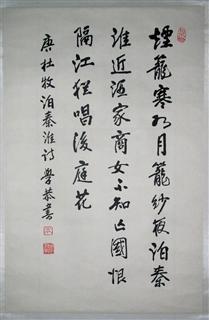 煙籠寒水月籠紗夜泊秦
淮近酒家商女不知亡國恨
隔江猶唱後庭花
唐杜牧泊秦淮詩 學恭書